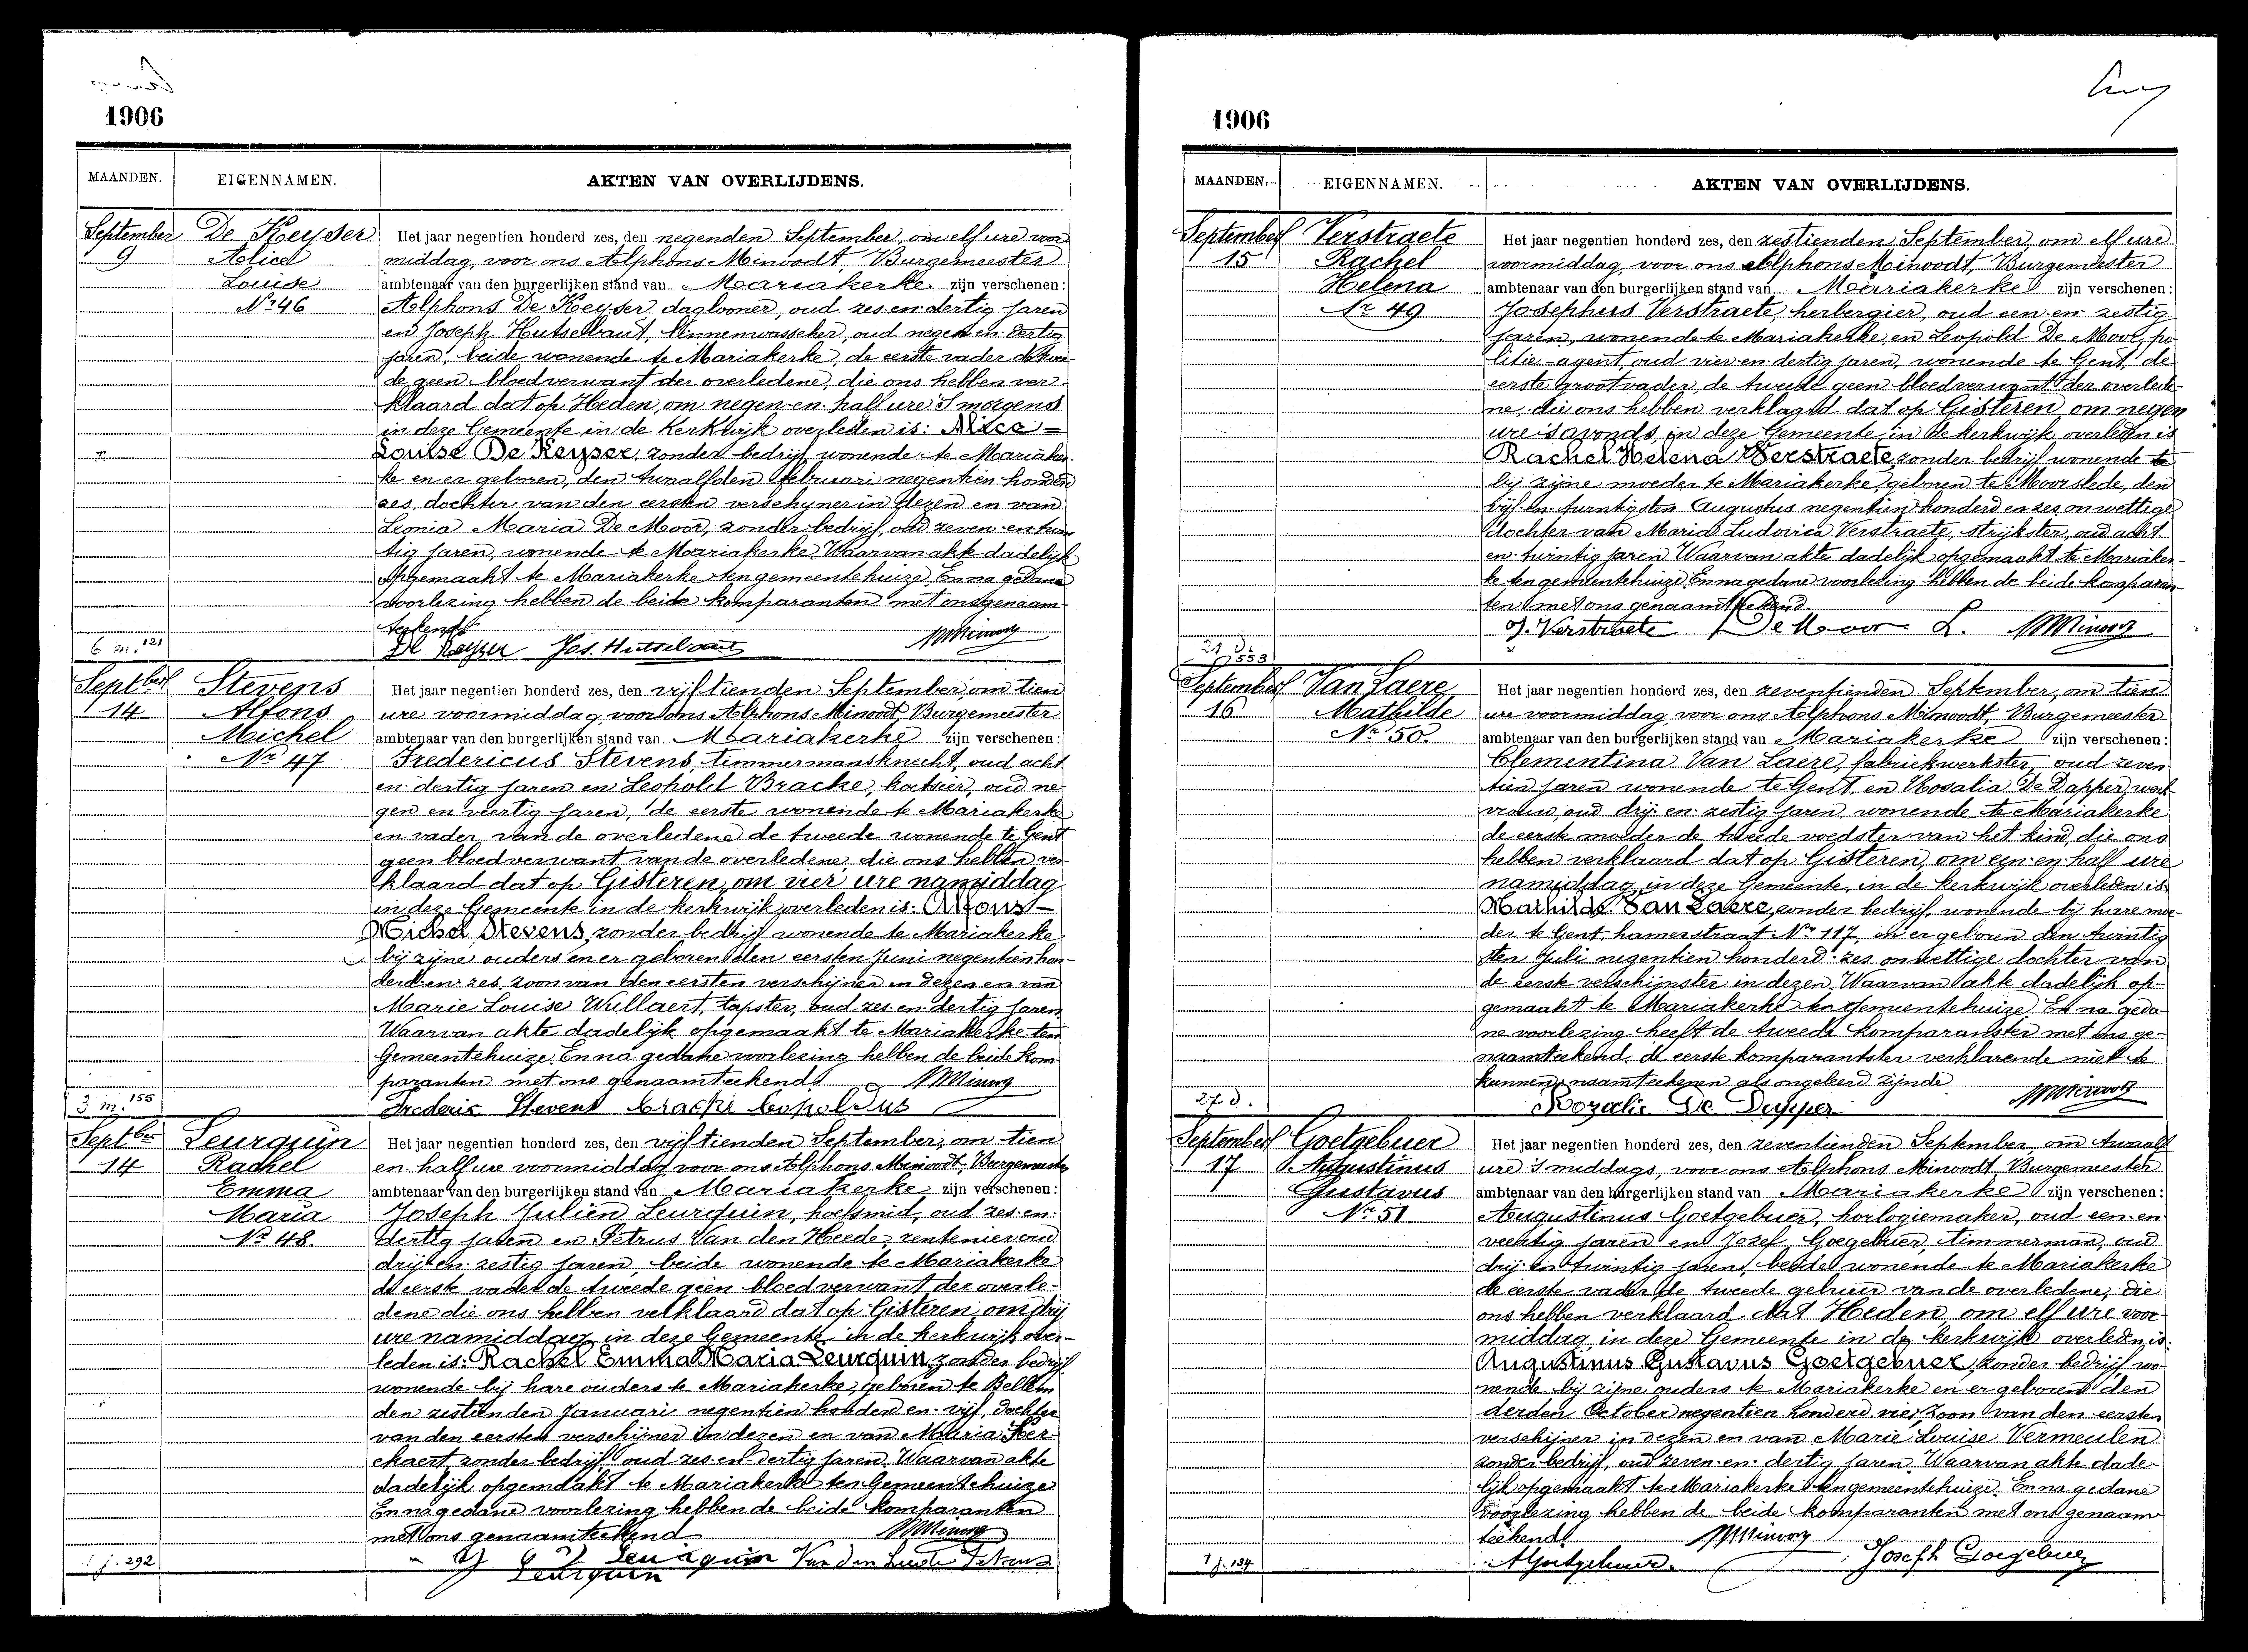 1906
MAANDEN. EIGENNAMEN. AKTEN VAN OVERLIJDENS.
September De Keyser Het jaar negentien honderd zes, den negenden September, om elf ure voor
9 Alice middag, voor ons Alphons Minoodt, Burgemeester
Louise ambtenaar van den burgerlijken stand van Mariakerke zijn verschenen:
Nr 46 Alphons De Keyser daglooner, oud zes en dertig jaren
en Joseph Hutsebaut, linnenwasscher, oud negen en dertig
jaren, beide wonende te Mariakerke, de eerste vader de twee
de geen bloedverwant der overledene, die ons hebben ver
klaard dat op Heden, om negen en half ure 's morgens
in deze Gemeente in de Kerkwijk overleden is: Alice
Louise De Keyser, zonder bedrijf, wonende te Mariaker
ke en er geboren, den twaalfden Februari negentien honderd
zes, dochter van den eersten verschyner in dezen en van
Leonia Maria De Moor, zonder bedrijf, oud zeven en twin
tig jaren, wonende te Mariakerke. Waarvan akte dadelijk
opgemaakt te Mariakerke ten gemeentehuize. En na gedane
voorlezing hebben de beide komparanten met ons genaam
teekend
6 m. 121 De Keyser Jos. Hutsebaut
Septber Stevens Het jaar negentien honderd zes, den vijftienden September, om tien
14 Alfons ure voormiddag, voor ons Alphons Minoodt, Burgemeester
Michel ambtenaar van den burgerlijken stand van Mariakerke zijn verschenen:
Nr 47 Fredericus Stevens, timmermansknecht, oud acht
en dertig jaren en Leopold Bracke, koetsier, oud ne
gen en veertig jaren, de eerste wonende te Mariakerke
en vader van de overledene de tweede wonende te Gent
geen bloedverwant van de overledene, die ons hebben ver-
klaard dat op Gisteren, om vier ure namiddag
in deze Gemeente in de kerkwijk overleden is: Alfons
Michel Stevens, zonder bedrijf wonende te Mariakerke
bij zijne ouders en er geboren den eersten Juni negentien hon-
derd en zes, zoon van den eersten verschijner in dezen en van
Marie Louise Wullaert, tapster, oud zes en dertig jaren
Waarvan akte dadelijk opgemaakt te Mariakerke ten
Gemeentehuize. En na gedane voorlezing hebben de beide kom-
paranten met ons genaamteekend
3 m. 155 Frederic Stevens Bracke Leopoldus
Septber Leurquin Het jaar negentien honderd zes, den vijftienden September, om tien
14 Rachel en half ure voormiddag voor ons Alphons Minoodt, Burgemeester
Emma ambtenaar van den burgerlijken stand van Mariakerke zijn verschenen:
Maria Joseph Julien Leurquin, hoefsmid, oud zes en
Nr 48. dertig jaren en Petrus Van den Heede, rentenier oud
drij en zestig jaren, beide wonende te Mariakerke
de eerste vader de tweede geen bloedverwant der overle-
dene die ons hebben verklaard dat op Gisteren, om drij
ure namiddag in deze Gemeente in de kerkwijk over-
leden is: Rachel Emma Maria Leurquin, zonder bedrijf
wonende bij hare ouders te Mariakerke, geboren te Bellem
den zestienden Januari negentien honderd en vijf, dochter
van den eersten verschijner in dezen en van Maria
zonder bedrijf oud zes en dertig jaren. Waarvan akte
dadelijk opgemaakt te Mariakerke ten Gemeentehuize
En na gedane voorlezing hebben de beide komparanten
met ons genaamteekend
1 j. 292 Leurquin Van den Heede Petrus
Leurquin
1906
MAANDEN. EIGENNAMEN. AKTEN VAN OVERLIJDENS.
September Verstraete Het jaar negentien honderd zes, den zestienden September, om elf ure
15 Rachel voormiddag, voor ons Alphons Minoodt, Burgemeester
Helena ambtenaar van den burgerlijken stand van Mariakerke zijn verschenen:
Nr 49 Josephus Verstraete, herbergier, oud een en zestig
jaren, wonende te Mariakerke, en Leopold De Moor, po
litie-agent, oud vier en dertig jaren, wonende te Gent, de
eerste grootvader, de tweede geen bloedverwant der overlede-
ne, die ons hebben verklaard dat op Gisteren, om negen
ure 's avonds, in deze Gemeente in de kerkwijk overleden is
Rachel Helena Verstraete, zonder bedrijf wonende te
bij zijne moeder te Mariakerke, geboren te Moorslede, den
vijf en twintigsten Augustus negentien honderd en zes onwettige
dochter van Maria Ludovica Verstraete, strijkster, oud acht
en twintig jaren. Waarvan akte dadelijk opgemaakt te Mariaker-
ke ten gemeentehuize. En na gedane voorlezing hebben de beide komparan-
ten met ons genaamteekend.
J. Verstraete De Moor L.
21 d. 553
September Van Laere Het jaar negentien honderd zes, den zeventienden September, om tien
16 Mathilde ure voormiddag voor ons Alphons Minoodt, Burgemeester
Nr 50. ambtenaar van den burgerlijken stand van Mariakerke zijn verschenen:
Clementina Van Laere, fabriekwerkster, oud zeven
tien jaren wonende te Gent, en Rosalia De Dapper, werk
vrouw, oud drij en zestig jaren, wonende te Mariakerke
de eerste moeder de tweede voedster van het kind, die ons
hebben verklaard dat op Gisteren, om een en half ure
namiddag in deze Gemeente, in de kerkwijk overleden is
Mathilde Van Laere, zonder bedrijf, wonende bij hare moe-
der te Gent, hamerstraat Nr 117, en er geboren den twintig
sten Juli negentien honderd zes onwettige dochter van
de eerste verschijnster in dezen. Waarvan akte dadelijk op-
gemaakt te Mariakerke ten Gemeentehuize. En na geda-
ne voorlezing heeft de tweede komparantster met ons ge-
naamteekend, de eerste komparantster verklarende niet te
kunnen naamteekenen als ongeleerd zijnde
27 d. Rozalie De Dapper
September Goetgebuer Het jaar negentien honderd zes, den zeventienden September om twaalf
17 Augustinus ure 's middags, voor ons Alphons Minoodt, Burgemeester
Gustavus ambtenaar van den burgerlijken stand van Mariakerke zijn verschenen:
Nr 51. Augustinus Goetgebuer, horlogiemaker, oud een en
veertig jaren en Jozef Goegebuer, timmerman, oud
drij en twintig jaren, beide wonende te Mariakerke
de eerste vader de tweede gebuur van de overledene, die
ons hebben verklaard dat Heden om elf ure voor
middag in deze Gemeente in de kerkwijk overleden is
Augustinus Gustavus Goetgebuer, zonder bedrijf wo-
nende bij zijne ouders te Mariakerke en er geboren den
derden October negentien honderd vier, zoon van den eersten
verschijner in dezen en van Marie Louise Vermeulen
zonder bedrijf, oud zeven en dertig jaren. Waarvan akte dade-
lijk opgemaakt te Mariakerke ten gemeentehuize. En na gedane
voorlezing hebben de beide komparanten met ons genaam
teekend
1 j. 134 A Goetgebuer. Joseph Goegebuer